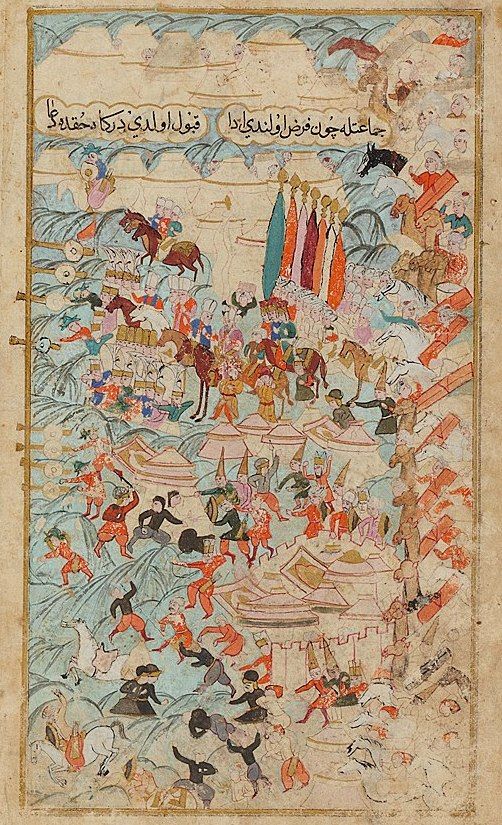 جماعتله چون فرض اولندي ادا
قبول اولدي دركاه حقده دعا